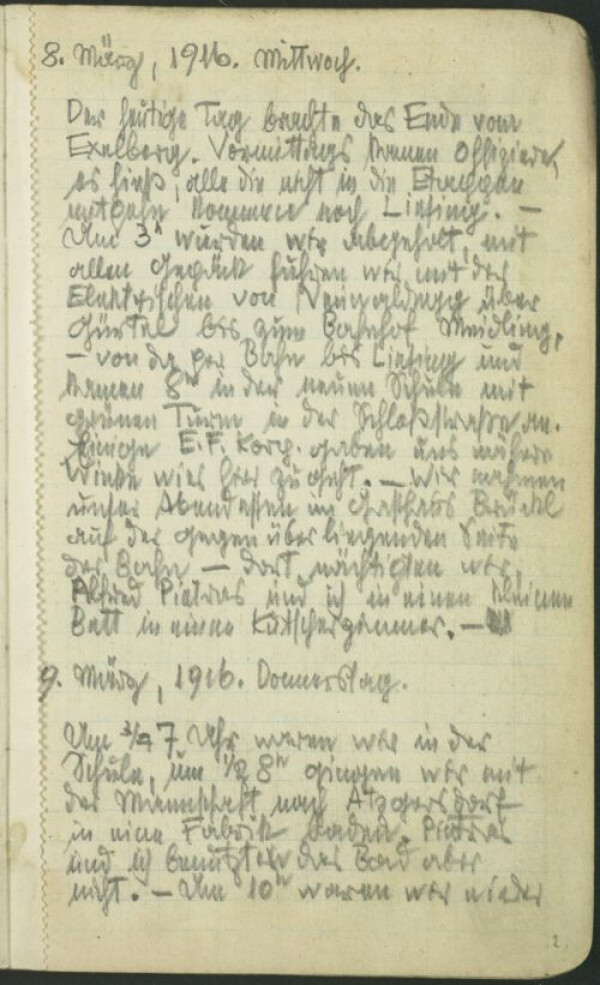 8. März, 1916. Mittwoch.
Der heutige Tag brachte das Ende vom
Exelberg. Vormittags kamen Offiziere,
es hieß, alle die nicht in die Etappen
mitgehn kommen nach Liesing. —
Um 3ʰ wurden wir abgeholt, mit
allen Gepäck fuhren wir mit der
Elektrischen von Neuwaldegg über
Gürtel bis zum Bahnhof Meidling,
— von da per Bahn bis Liesing und
kamen 8ʰ in der neuen Schule mit
grünen Turm in der Schloßstraße an.
Einige E.F. Korp. gaben uns nähere
Winke wies hier zugeht. — Wir nahmen
unser Abendessen im Gasthaus Brückl
auf der gegenüberliegenden Seite
der Bahn — dort nächtigten wir,
Alfred Pietras und ich in einen kleinen
Bett in einem Kutscherzimmer. —
9. März, 1916. Donnerstag.
Um ¾ 7 Uhr waren wir in der
Schule, um ½ 8ʰ gingen wir mit
der Mannschaft nach Atzgersdorf
in eine Fabrik baden. Pietras
und ich benützten das Bad aber
nicht. — Um 10ʰ waren wir wieder
2